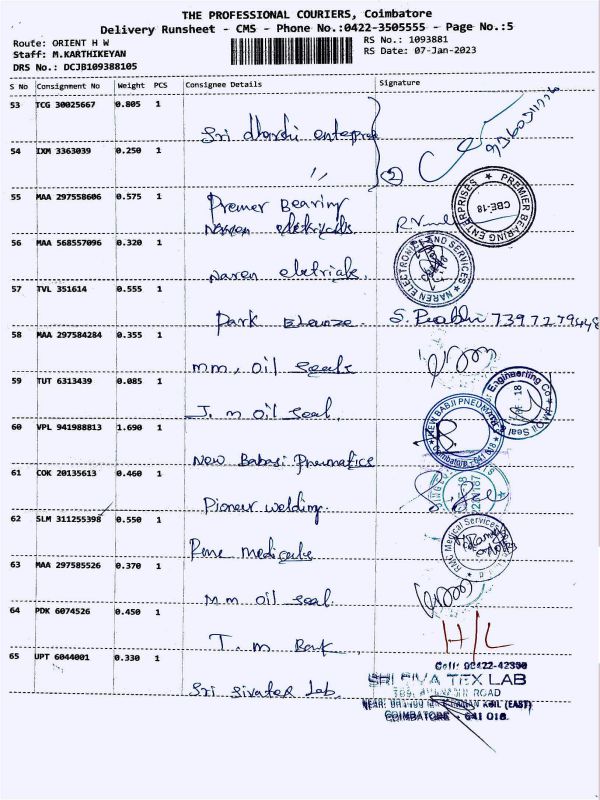 THE PROFESSIONAL COURIERS, Coimbatore
Delivery Runsheet - CMS - Phone No.:0422-3505555 - Page No.:5
Route: ORIENT H W
RS No.: 1093881
Staff: M.KARTHIKEYAN
RS Date: 07-Jan-2023
DRS No.: DCJB109388105
S No Consignment No Weight PCS Consignee Details Signature
53 TCG 30025667 0.805 1
Sri dharshi enterprises
54 IXM 3363039 0.250 1
〃 2
55 MAA 297558606 0.575 1
Premer Bearing
Naren eletricals
PREMIER BEARING ENTERPRISES
CBE-18
56 MAA 568557096 0.320 1
Naren eletricals.
NAREN ELECTRONICS AND SERVICES
57 TVL 351614 0.555 1
Park
S. Prabhu 7397279448
58 MAA 297584284 0.355 1
mm, oil seals
59 TUT 6313439 0.085 1
J. m oil seal.
Engineering Co
Oil Seal
60 VPL 941988813 1.690 1
New Babasi Pneumatics
NEW BABJI PNEUMATICS
Coimbatore - 641 018
61 COK 20135613 0.460 1
Pioneer welding.
62 SLM 311255398 0.550 1
Rme medicals
RME Medical Services
63 MAA 297585526 0.370 1
M.m oil seal.
64 PDK 6074526 0.450 1
T. m Bank
H/L
65 UPT 6044001 0.330 1
Sri Sivatex Lab.
Cell: 98422-42390
SRI SIVA TEX LAB
ROAD
(EAST)
COIMBATORE - 641 018.